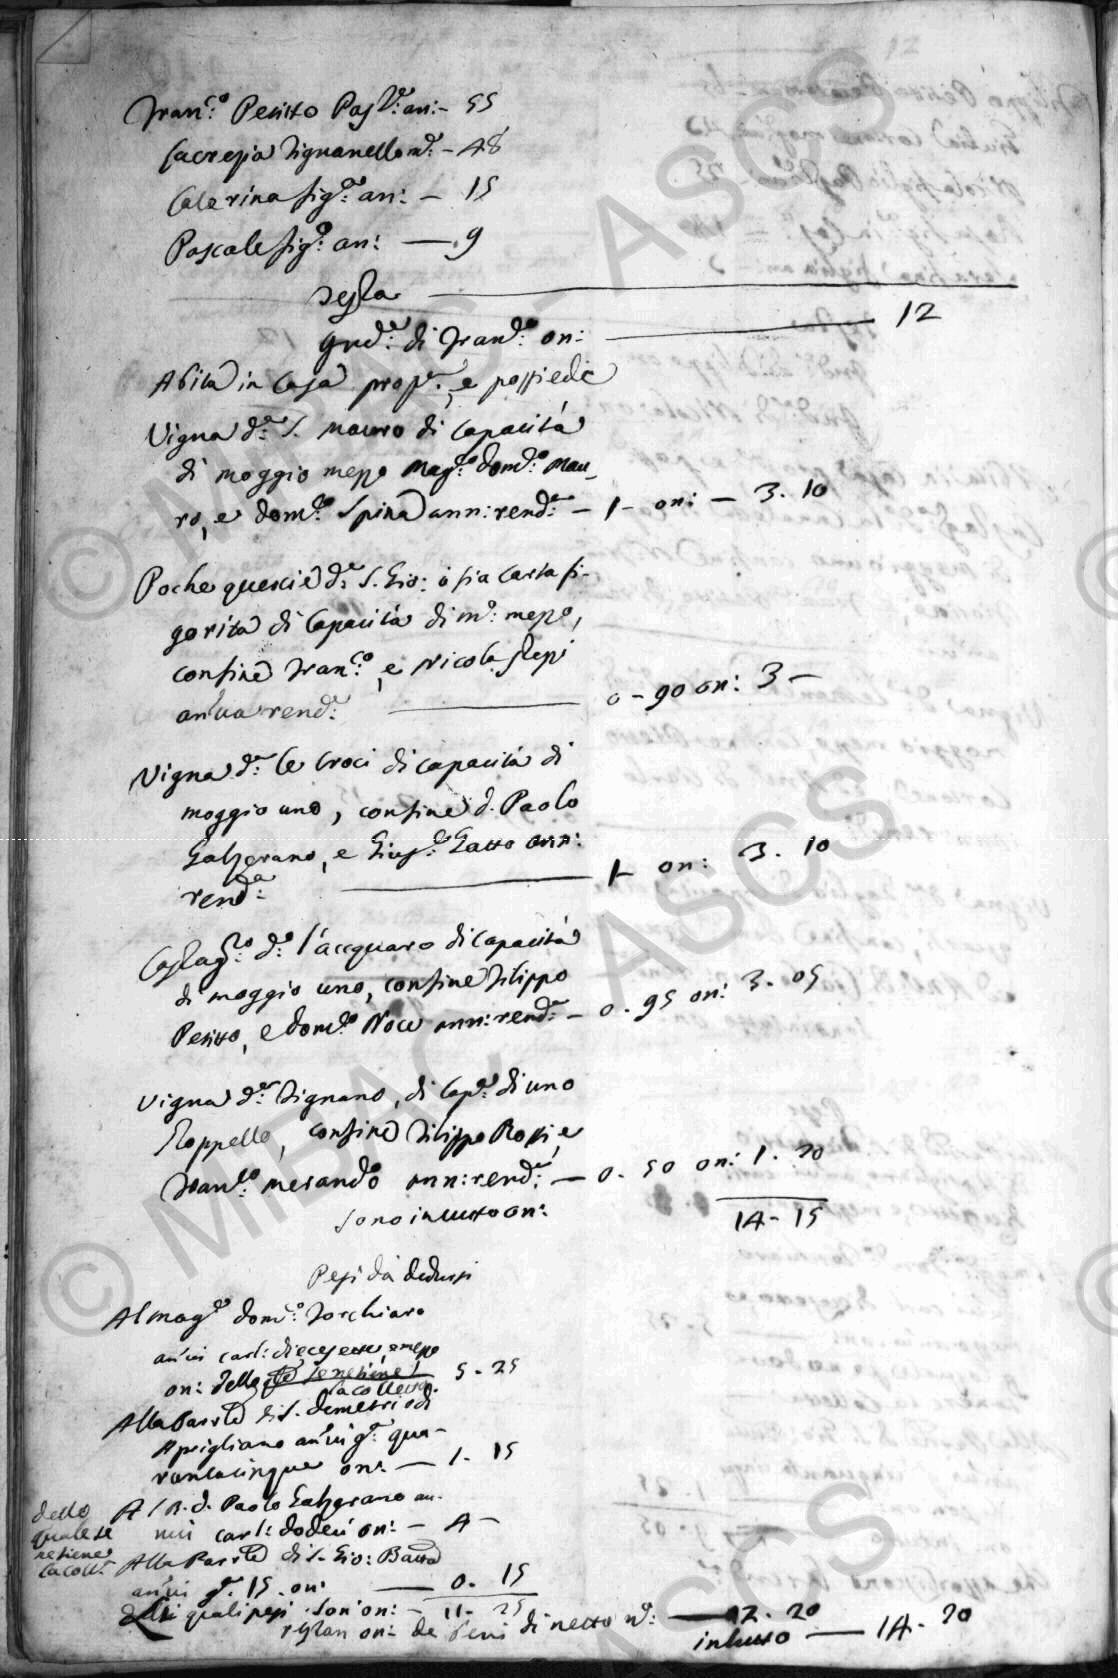 Fran:co Peritto Pag:le an:- 55
Lucrezia Signanello m:e - 48
Caterina fig:a an: - 15
Pascale fig:o an: - 9
Testa 12
Ind:a di Fran:co on:
Abita in Casa prop:a, e possiede
Vigna d:a S. Mauro di Capacità
di moggio mezzo Mag:co Dom:co Mau-
ro, e Dom:co Spina ann: rend:a - 1 - on: - 3. 10
Poche quercie d:e S. Gio: o sia Carta fi-
gorita di Capacità di m:o mezzo,
confine Fran:co, e Nicola
an̄ua rend:a 0 - 90 on: 3 -
Vigna d:a le Croci di capacità di
moggio uno, confine d. Paolo
Galzerano, e Gius:e Gatto ann:
rend:a 1 - on: 3. 10
Castag:to d:o l'accquaro di capacità
di moggio uno, confine Filippo
Peritto, e Dom:co Noce ann: rend:a - 0. 95 on: 3. 05
Vigna d:a Signano, di Cap:tà di uno
stoppello, confine Filippo Rossi, e
Fran:co Merando ann: rend:a - 0. 50 on: 1. 20
Sono in tutto on: 14 - 15
Pesi da dedursi
Al Mag:co Dom:co Torchiaro
an̄ui carl: diecesette, e mezzo
on: delle
la collett:a 5 - 25
Alla Parr:le di S. Demetrio di
Aprigliano an̄ui g:a qua-
rantacinque on: - 1. 15
Al R. d. Paolo Galzerano an-
nui carl: dodeci on: - 4 -
dello
quale se
retiene
la coll:a
Alla Parr:le di S. Gio: Batta
an̄ui g:a 15. on: 0. 15
Delli quali pesi son on: - 11 - 25
restan on: de beni di netto n:o 2. 20
in tutto 14 - 20
© MIBAC - ASCS
© MIBAC - ASCS